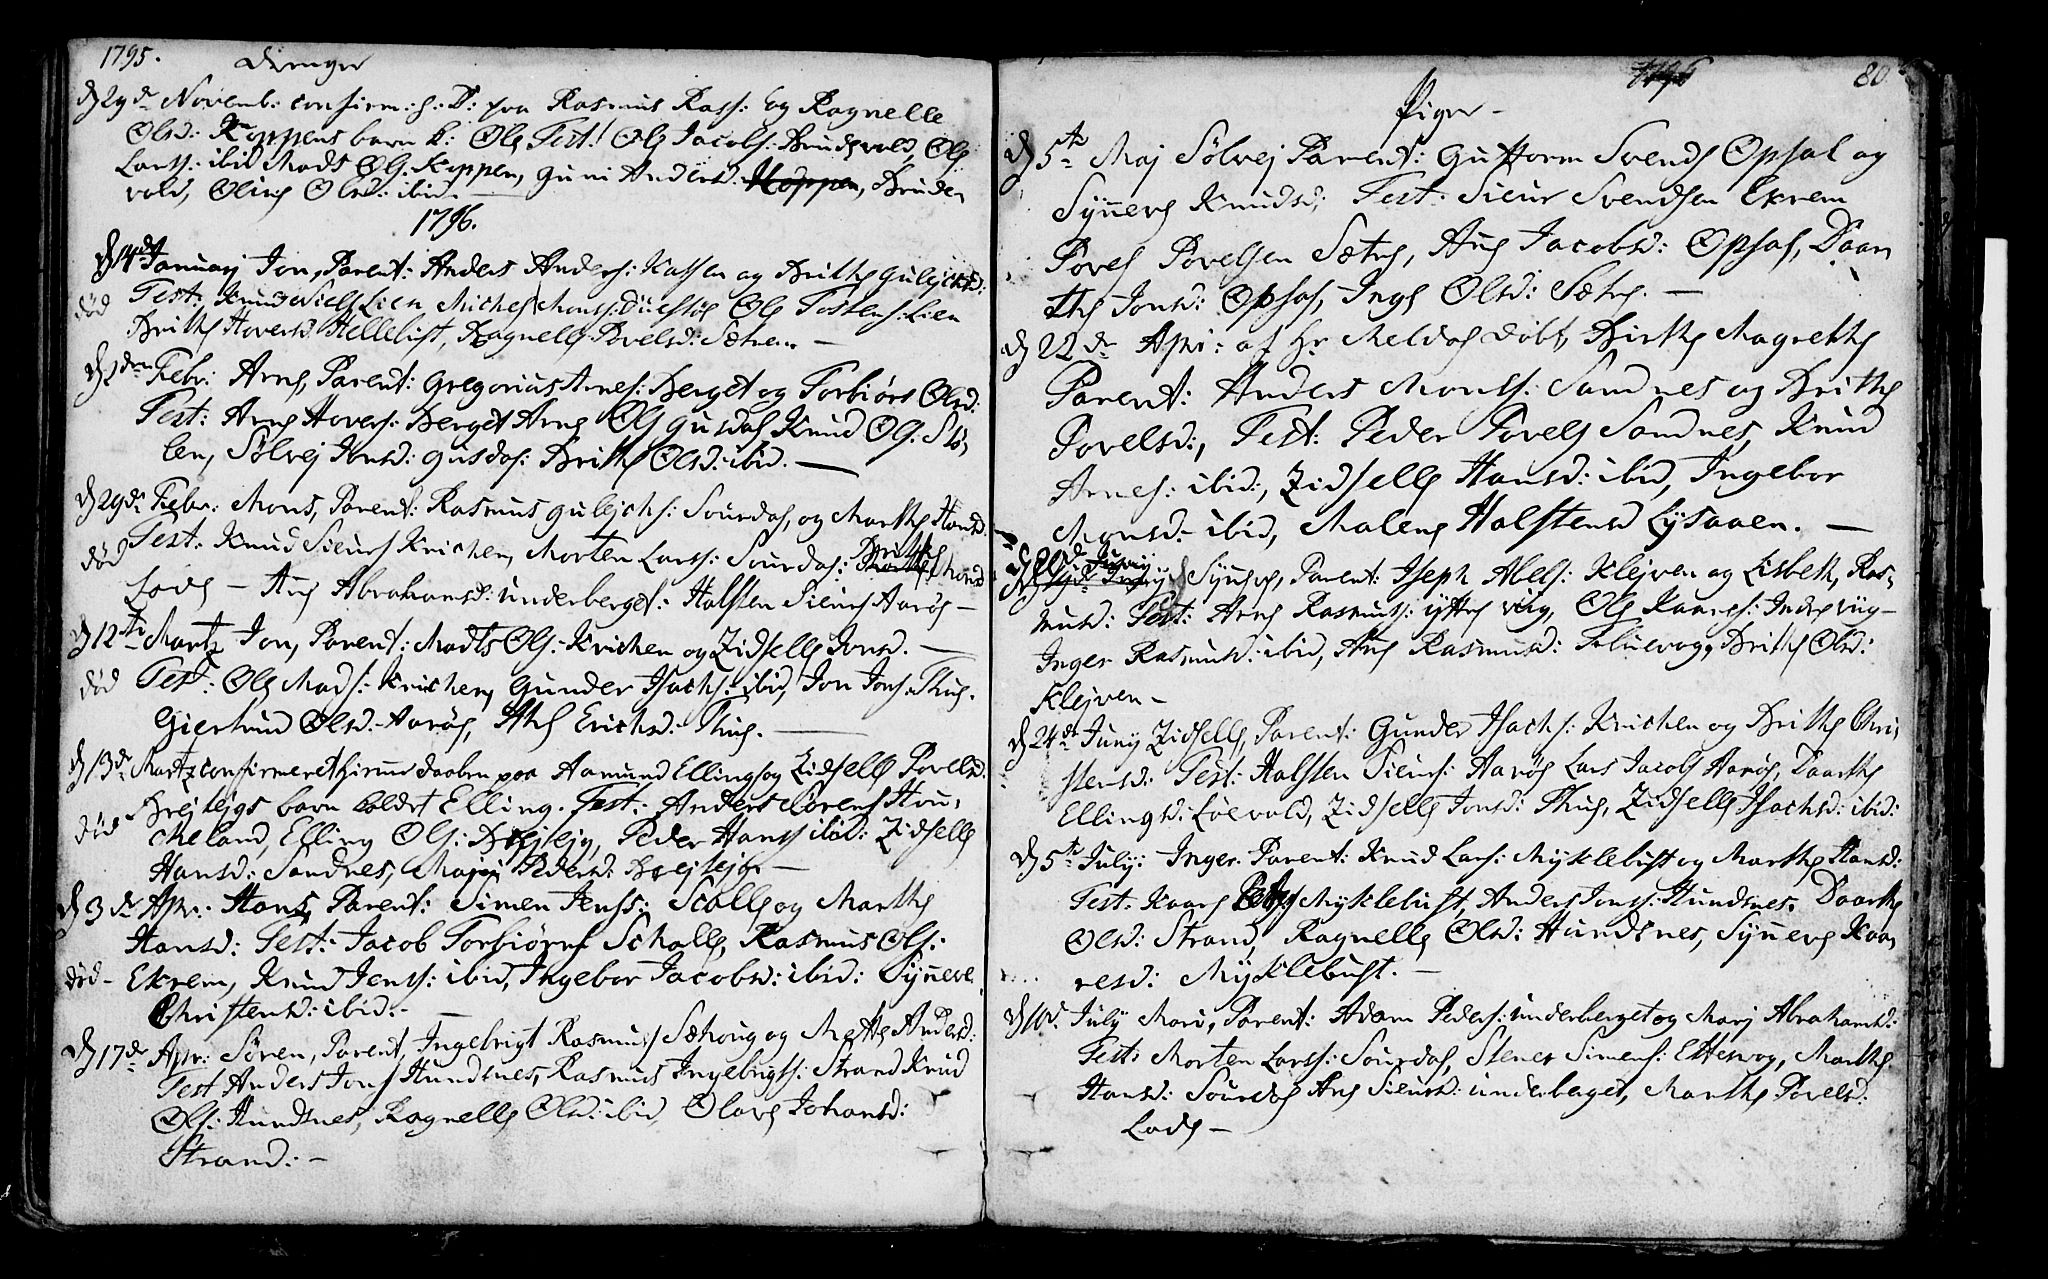 1795. Drenger
d 29de Novemb: confirm: h: D: paa Rasmus Rass: og Ragnelle
Olsd: Koppens barn k: Ole Test: Ole Jacobs: Brudevold, Ole
Larss: ibid Mads Ols: Koppen, Guni Andersd: Koppen, Brude
vold, Oline Olsd: ibid. —
1796.
d 4de January Jon, Parent: Anders Anders: Kalsen og Brithe Gulichsd:
død Test: Knud Niels Lien Michel Monss: Ole Tostens: Lien
Brithe Hoversd Hellebust, Ragnelle Povelsd: Sætre. —
d 1den Febr: Arne, Parent: Gregorius Arnes: Berget og Torbiør Olsd:
Test: Arne Hovers: Berget Arne Ols Gusdal Knud Ols: Stø,
len, Sølvej Jonsd: Gusdal: Brithe Olsd: ibid. —
d 29de Febr: Mons, Parent: Rasmus Gulichs: Sourdal, og Marthe Hansd
død Test: Knud Siurs Krichen, Morten Larss: Sourdal: Brithe Monsd
Lade — Ane Abrahamsd: underberget: Halsten Siurs Aarøe —
d 12te Martz Jon, Parent: Madts Ols: Krichen og Zidselle Jonsd. —
død Test: Ole Mads: Krichen, Gunder Isachs: ibid, Jon Jons: Thue.
Giertrud Olsd: Aarøe, Ane Erichsd: Thue. —
d 13de Martz confirmeret hiemmedaaben paa Aamund Ellings og Zidselle Povelsd.
Brejlejgs barn kaldet Elling. Test: Anders Sørens Hou,
død cheland, Elling Ols: Brejlejg, Peder Hanss ibid: Zidselle
Hansd: Sandnes, Mari Pedersd: Brejlejg. —
d 3de Apr: Hans, Parent: Simen Jenss: Scolle og Marthe
Hansd: Test: Jacob Torbiørns Scholle, Rasmus Ols:
død — Ekrem, Knud Jens: ibid, Ingebor Jacobsd: ibid: Synneve
Christensd: ibid: —
d 17de Apr: Søren, Parent, Ingebrigt Rasmuss Sæhoug og Mette Andersd:
Test Anders Jons Hundsnes, Rasmus Ingebrigts: Strand Knud
Ols: Hundsnes, Ragnelle Olsd: ibid, Olave Johansd:
Strand: —
80.
Piger —
d 5te Maj Sølvej Parent: Guttorm Svends Opsal og
Synneve Knudsd: Test: Siur Svendsen Ekrem
Povel Povelsen Sætre, Ane Jacobsd: Opsal, Daar
the Jonsd: Opsal, Inge Olsd: Sætre. —
d 22de Apri: af Hr Meldal døbt, Birthe Magrethe
Parent: Anders Monss: Sandnes og Brithe
Povelsd:, Test: Peder Povels Sandnes, Knud
Arnes: ibid:, Zidselle Hansd: ibid, Ingebor
Monsd: ibid, Malene Halstensd Lysaaen. —
Juny Synøve, Parent: Iseph Abels: Klejven og Lisbeth Ras,
musd: Test: Arne Rasmuss: yttre viig, Ole Kaares: Indre viig —
Inger Rasmusd: ibid, Ane Rasmusd: Foluevog, Brithe Olsd:
Klejven —
d 24de Juny Zidselle, Parent: Gunder Isachs: Krichen og Brithe Chri,
stensd: Test: Halsten Siurs: Aarøe Lars Jacobs Aarøe, Daarthe
Ellingsd: Løevold, Zidselle Jonsd: Thue, Zidselle Isachsd: ibid:
d 5te July: Inger. Parent: Knud Lars: Myklebust og Marthe Hansd:
Test: Kaare Myklebust, Anders Jonss: Hundsnes. Daarthe
Olsd: Strand, Ragnelle Olsd: Hundsnes, Synneve Kaa,
resd: Myklebust. —
d 10d: July Mari, Parent: Adam Peders: underberget og Marj Abrahamsd:
Test: Morten Larss: Sourdal, Stener Simens: Ettervog, Marthe
Hansd: Sourdal Ane Siursd: underberget, Marthe Povelsd:
Lade —